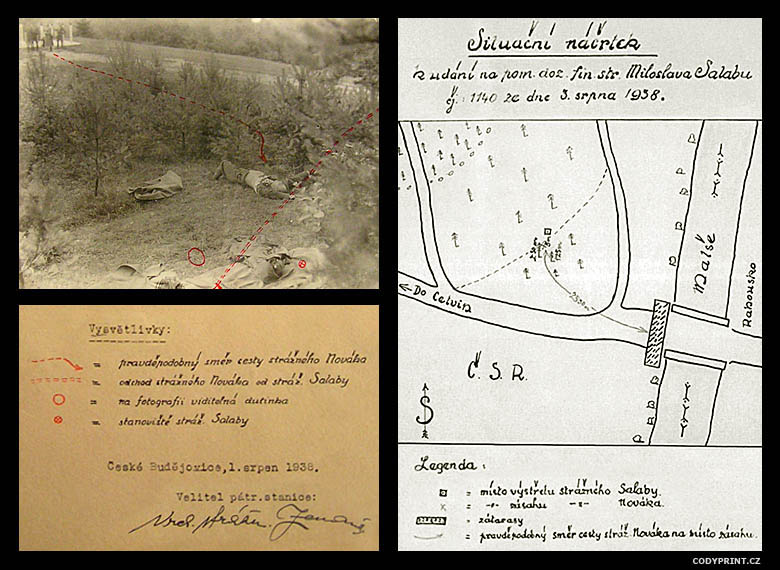 Situační náčrtek
k udání na pom. doz. fin. str. Miloslava Šalabu
čj: 1140 ze dne 3. srpna 1938.
Malše
Rakousko
Do Celvin
Č. S. R.
S
Legenda:
= místo výstřelu strážného Šalaby.
= -"- zásahu -"- Nováka.
= zátarasy
= pravděpodobný směr cesty stráž. Nováka na místo zásahu.
Vysvětlivky:
= pravděpodobný směr cesty strážného Nováka
= odchod strážného Nováka od stráž. Šalaby
= na fotografii viditelná dutinka
= stanoviště stráž. Šalaby
České Budějovice, 1. srpen 1938.
Velitel pátr. stanice:
CODYPRINT.CZ